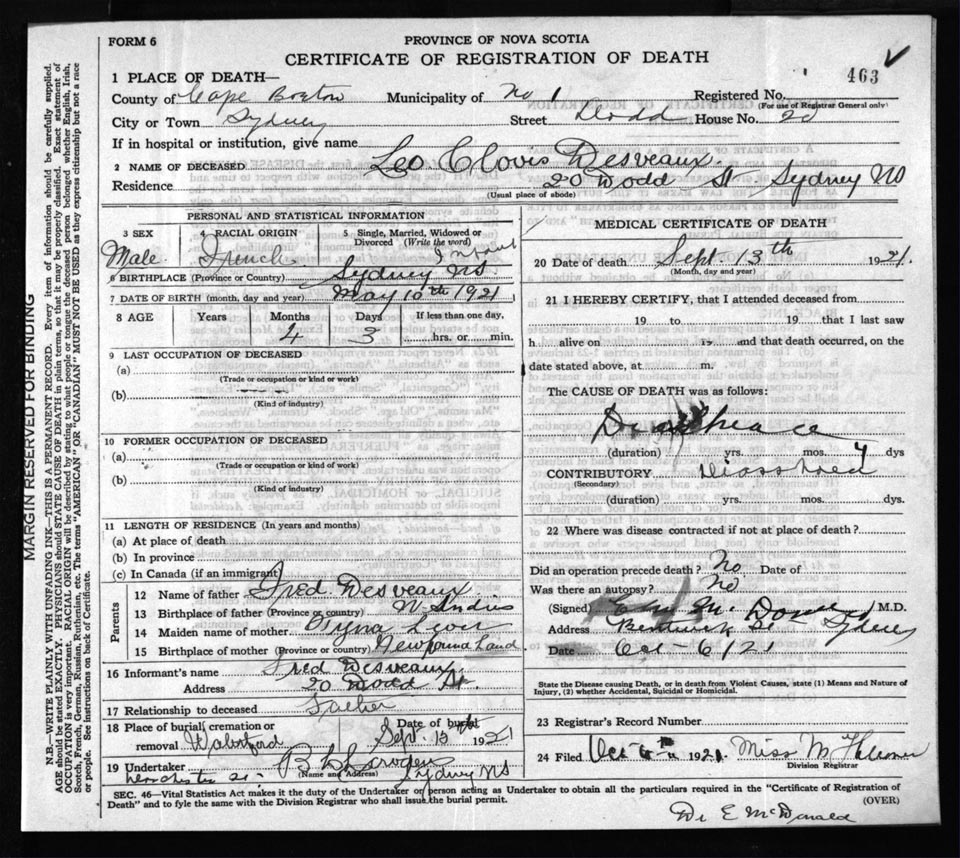 FORM 6
PROVINCE OF NOVA SCOTIA
CERTIFICATE OF REGISTRATION OF DEATH
463
1 PLACE OF DEATH—
County of Cape Breton Municipality of No 1 Registered No.
(For use of Registrar General only)
City or Town Sydney Street Dodd House No. 20
If in hospital or institution, give name
2 NAME OF DECEASED Leo Clovis Desveaux.
Residence 20 Dodd St Sydney NS
(Usual place of abode)
PERSONAL AND STATISTICAL INFORMATION
3 SEX 4 RACIAL ORIGIN 5 Single, Married, Widowed or Divorced (Write the word)
Male. French Infant
6 BIRTHPLACE (Province or Country) Sydney NS.
7 DATE OF BIRTH (month, day and year) May 10th 1921
8 AGE Years Months Days If less than one day,
4 3 hrs. or min.
9 LAST OCCUPATION OF DECEASED
(a)
(Trade or occupation or kind or work)
(b)
(Kind of industry)
10 FORMER OCCUPATION OF DECEASED
(a)
(Trade or occupation or kind of work)
(b)
(Kind of industry)
11 LENGTH OF RESIDENCE (In years and months)
(a) At place of death
(b) In province
(c) In Canada (if an immigrant)
Parents
12 Name of father Fred Desveaux.
13 Birthplace of father (Province or country) W. Indies
14 Maiden name of mother
15 Birthplace of mother (Province or Country) Newfound Land
16 Informant's name Fred Desveaux.
Address 20 Dodd St.
17 Relationship to deceased Father
18 Place of burial, cremation or removal Date of burial
Sept. 1921
19 Undertaker
(Name and Address) Sydney NS
MEDICAL CERTIFICATE OF DEATH
20 Date of death Sept 13th 1921.
(Month, day and year)
21 I HEREBY CERTIFY, that I attended deceased from
19 to 19 that I last saw
h alive on 19 and that death occurred, on the
date stated above, at m.
The CAUSE OF DEATH was as follows:
(duration) yrs. mos. 4 dys
CONTRIBUTORY
(Secondary)
(duration) yrs. mos. dys.
22 Where was disease contracted if not at place of death?
Did an operation precede death? No Date of
Was there an autopsy? No
(Signed) M.D.
Address Sydney
Date Oct - 6/21
State the Disease causing Death, or in death from Violent Causes, state (1) Means and Nature of Injury, (2) whether Accidental, Suicidal or Homicidal.
23 Registrar's Record Number
24 Filed Oct 6 1921 Miss M
Division Registrar
SEC. 46—Vital Statistics Act makes it the duty of the Undertaker or person acting as Undertaker to obtain all the particulars required in the "Certificate of Registration of
Death" and to fyle the same with the Division Registrar who shall issue the burial permit. (OVER)
Dr E McDonald
MARGIN RESERVED FOR BINDING
N.B.—WRITE PLAINLY WITH UNFADING INK—THIS IS A PERMANENT RECORD. Every item of information should be carefully supplied.
AGE should be stated EXACTLY. PHYSICIANS should STATE CAUSE OF DEATH in plain terms, so that it may be properly classified. Exact statement of
OCCUPATION is very important. RACIAL ORIGIN will be described by stating to what people or tongue the deceased person belonged, whether English, Irish,
Scotch, French, German, Russian, Ruthenian, etc. The terms "AMERICAN" OR "CANADIAN" MUST NOT BE USED as they express citizenship but not a race
or people. See instructions on back of Certificate.